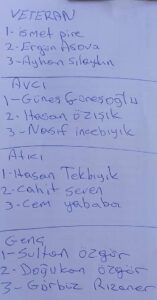 VETERAN
1- ismet pire
2- Ergün Asova
3- Ayhan Silaydın
Avcı
1- Güneş Güneşoğlu
2- Hasan özışık
3- Nasıf incebıyık
Atıcı
1- Hasan Tekbıyık
2- Cahit seren
3- Cem yababa
Genç
1- Sultan özgür
2- Doğukan özgür
3- Görbiz Rızaner